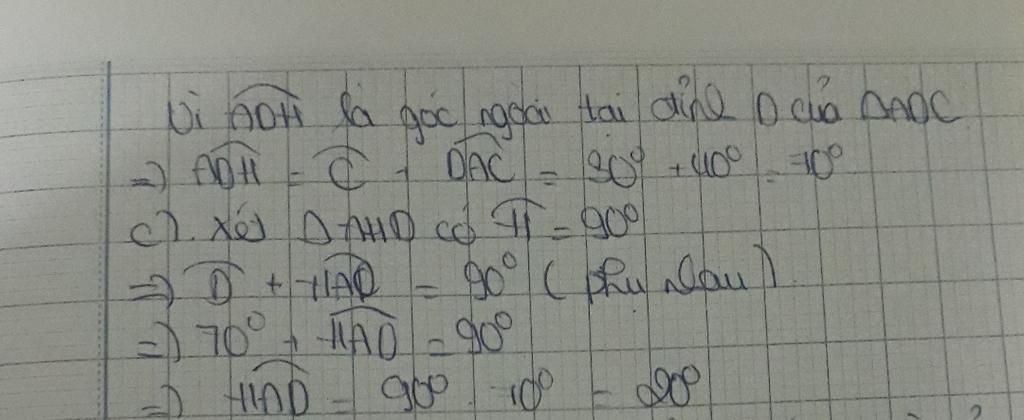 Vì ADH là góc ngoài tại đỉnh D của ΔADC
=> ADH = C + DAC = 30° + 40° = 70°
c). Xét Δ AHD có H = 90°
=> D + HAD = 90° (phụ nhau)
=> 70° + HAD = 90°
=> HAD = 90° - 70° = 20°